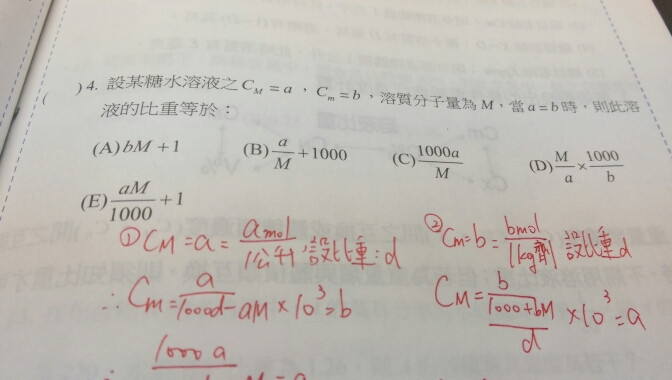 ( )4. 設某糖水溶液之 C_M = a，C_m = b，溶質分子量為 M，當 a = b 時，則此溶
液的比重等於：
(A) bM + 1 (B) a/M + 1000 (C) 1000a/M (D) M/a × 1000/b
(E) aM/1000 + 1
① CM = a = amol/1公升, 設比重:d
∴ Cm = a/(1000d - aM) × 10³ = b
1000a
② Cm = b = bmol/1kg劑 設比重d
CM = b/((1000+bM)/d) × 10³ = a